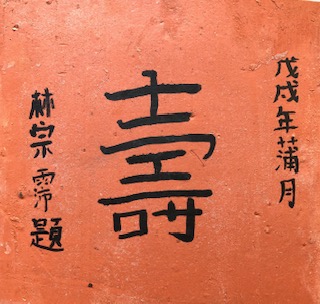 戊戌年蒲月
壽
林宗霈題